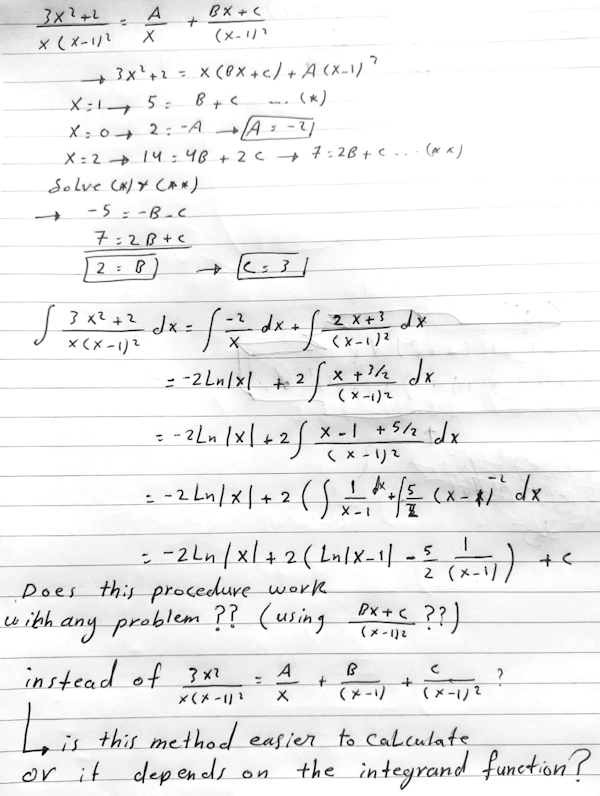 3x²+2 / x(x-1)² = A / x + Bx+c / (x-1)²
→ 3x²+2 = x(Bx+c) + A(x-1)²
x=1 → 5 = B + c ... (*)
x=0 → 2 = -A → A = -2
x=2 → 14 = 4B + 2c → 7=2B+c ... (**)
Solve (*) & (**)
→ -5 = -B-c
7 = 2B+c
2 = B → c = 3
∫ 3x²+2 / x(x-1)² dx = ∫ -2 / x dx + ∫ 2x+3 / (x-1)² dx
= -2Ln|x| + 2 ∫ x + 3/2 / (x-1)² dx
= -2Ln|x| + 2 ∫ x-1 + 5/2 / (x-1)² dx
= -2Ln|x| + 2 ( ∫ 1 / x-1 dx + ∫ 5/2 (x-1)⁻² dx
= -2Ln|x| + 2 (Ln|x-1| - 5/2 1 / (x-1) ) + c
Does this procedure work
with any problem ?? (using Bx+c / (x-1)² ??)
instead of 3x² / x(x-1)² = A / x + B / (x-1) + c / (x-1)² ?
↳ is this method easier to calculate
or it depends on the integrand function?